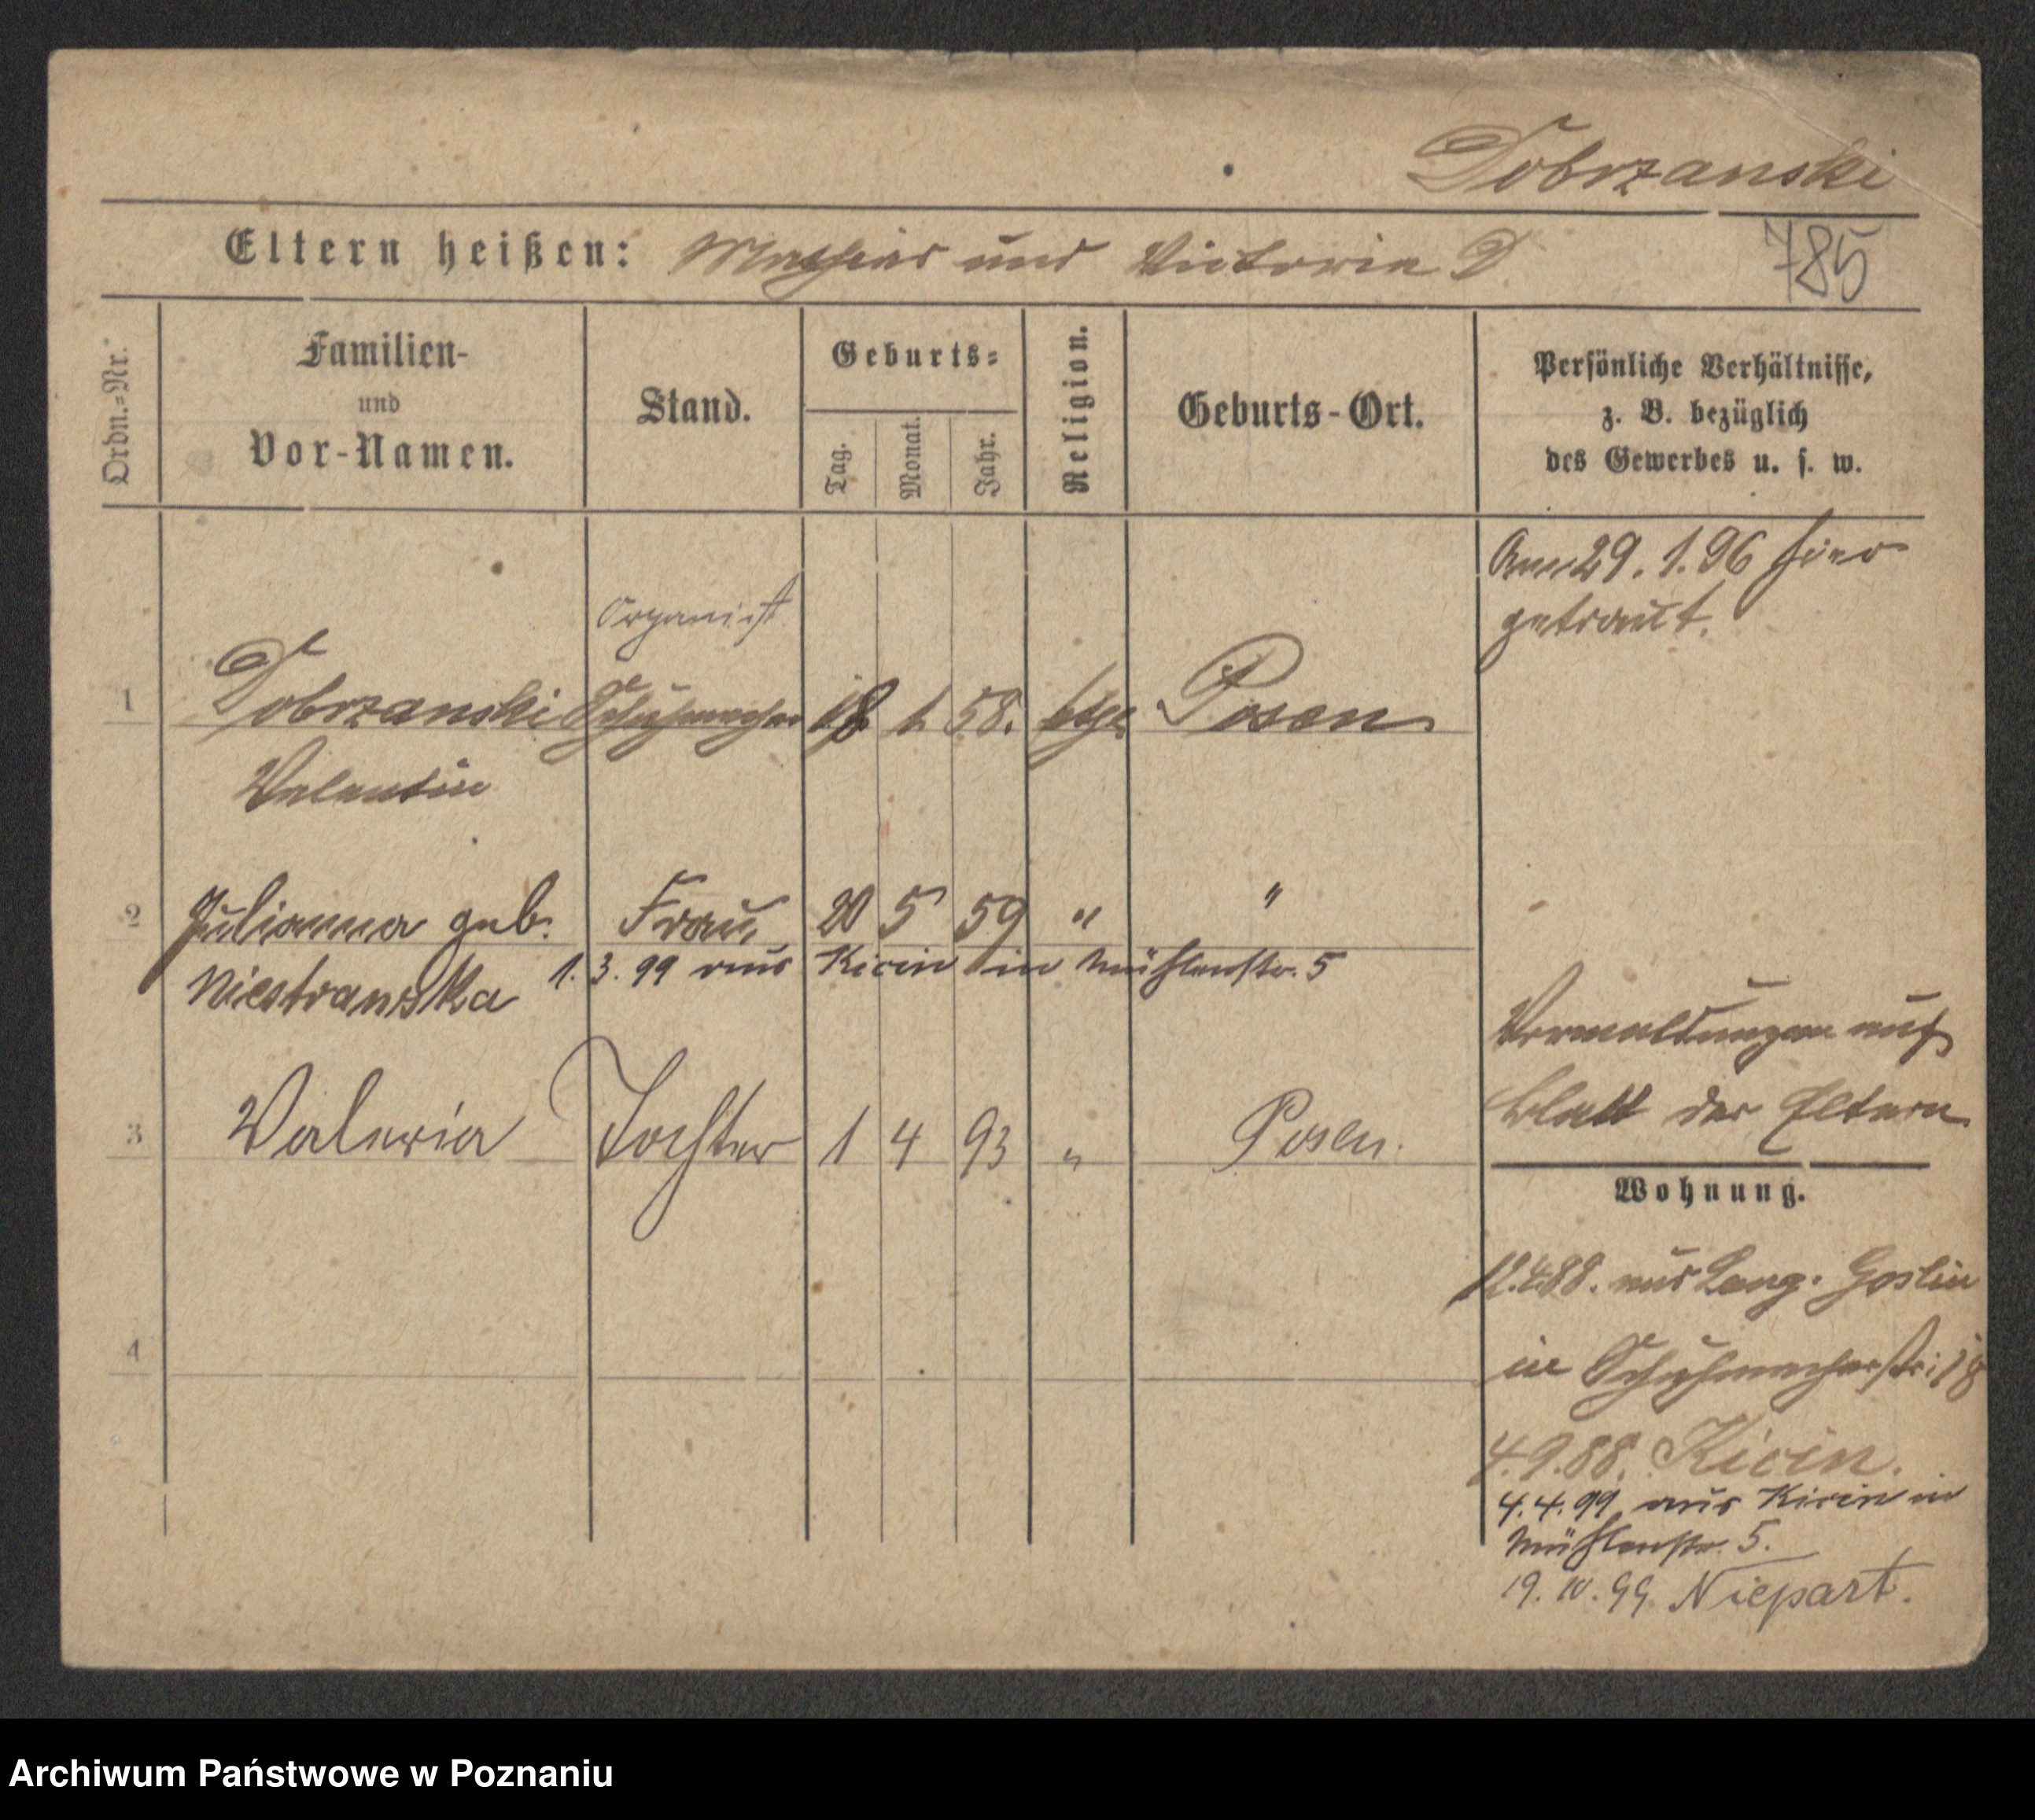 Dobrzanski
Eltern heißen: Mathias und Victoria D
785
Ordn.=Nr.
Familien-
und
Vor-Namen.
Stand.
Geburts=
Tag.
Monat.
Jahr.
Religion.
Geburts-Ort.
Persönliche Verhältnisse,
z. B. bezüglich
des Gewerbes u. s. w.
Am 29. 1. 96 hier
getraut.
Organist
1 Dobrzanski Schuhmacher 58. kth. Posen
Valentin
2 Julianna geb. Frau 20 5 59 " "
1. 3. 99 aus Kicin in Mühlenstr. 5
Niestrawska
3 Valeria Tochter 1 4 93 " Posen.
Verwaltungen auf
Blatt der Eltern
Wohnung.
aus Lang. Goslin
in Schuhmacherstr: 18
4. 9. 88. Kicin.
4. 4. 99 aus Kicin in
Mühlenstr. 5.
19. 10. 99 Niepart.
4
Archiwum Państwowe w Poznaniu